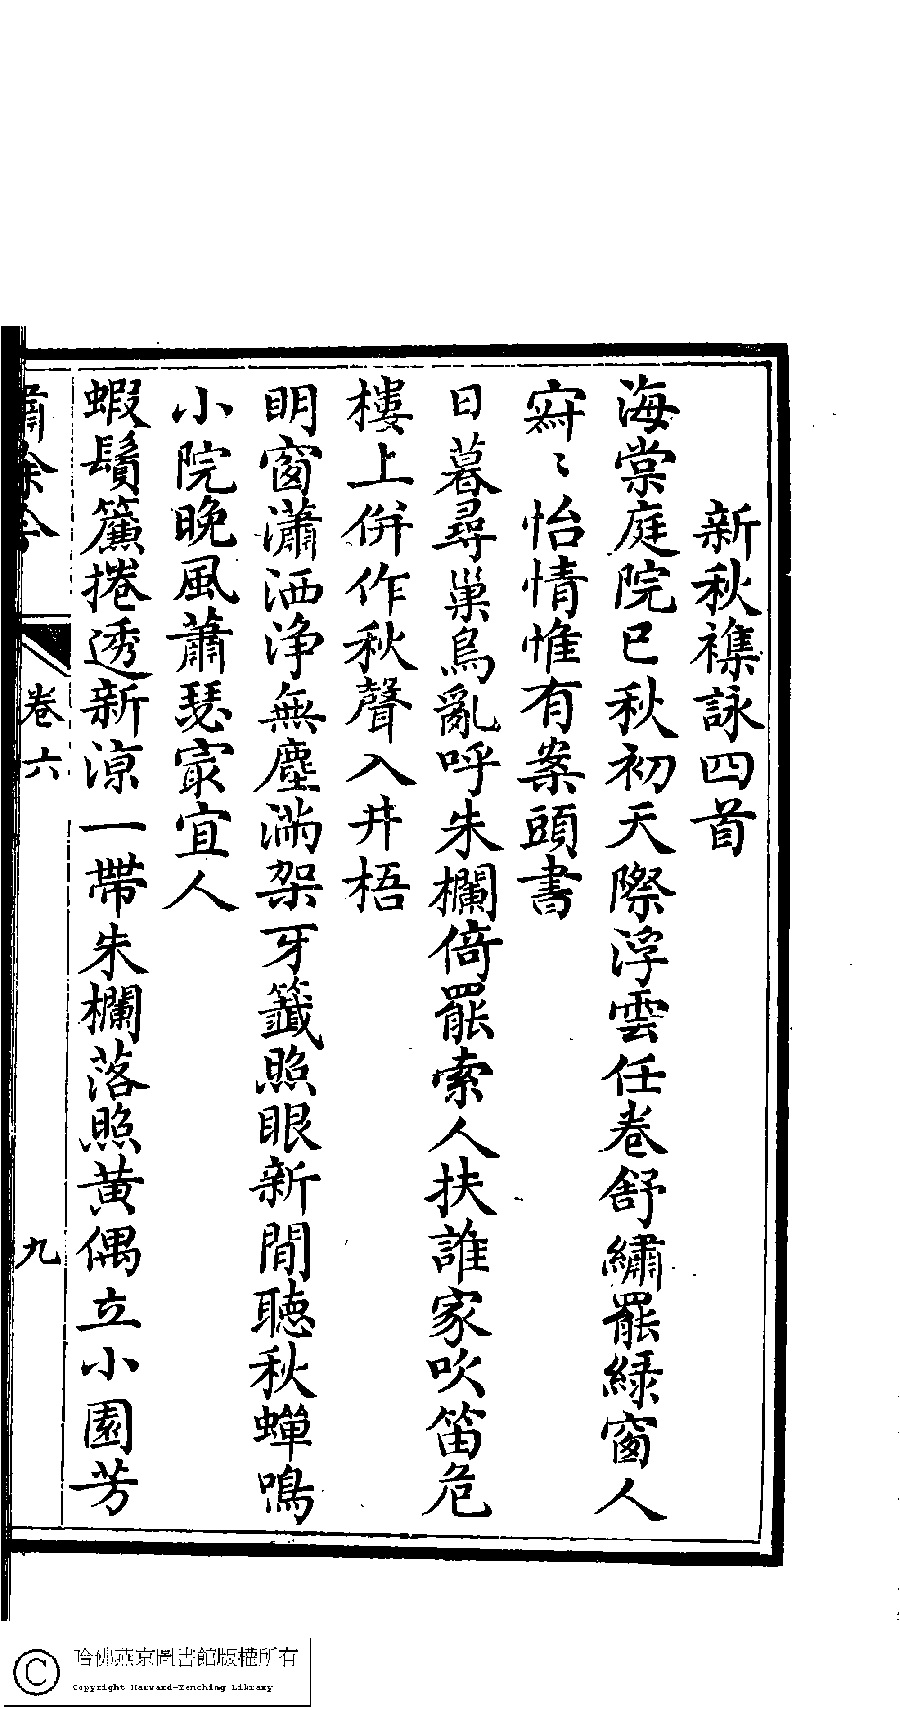 新秋襍詠四首
海棠庭院已秋初天際浮雲任卷舒繡罷綠窗人
寂〻怡情惟有案頭書
日暮尋巢烏亂呼朱欄倚罷索人扶誰家吹笛危
樓上併作秋聲入井梧
明窗瀟洒浄無塵滿架牙籤照眼新閒聽秋蟬鳴
小院晚風蕭瑟㝡宜人
蝦鬚簾捲透新涼一帶朱欄落照黃偶立小園芳
卷六
九
哈佛燕京圖書館版權所有
Copyright Harvard-Yenching Library